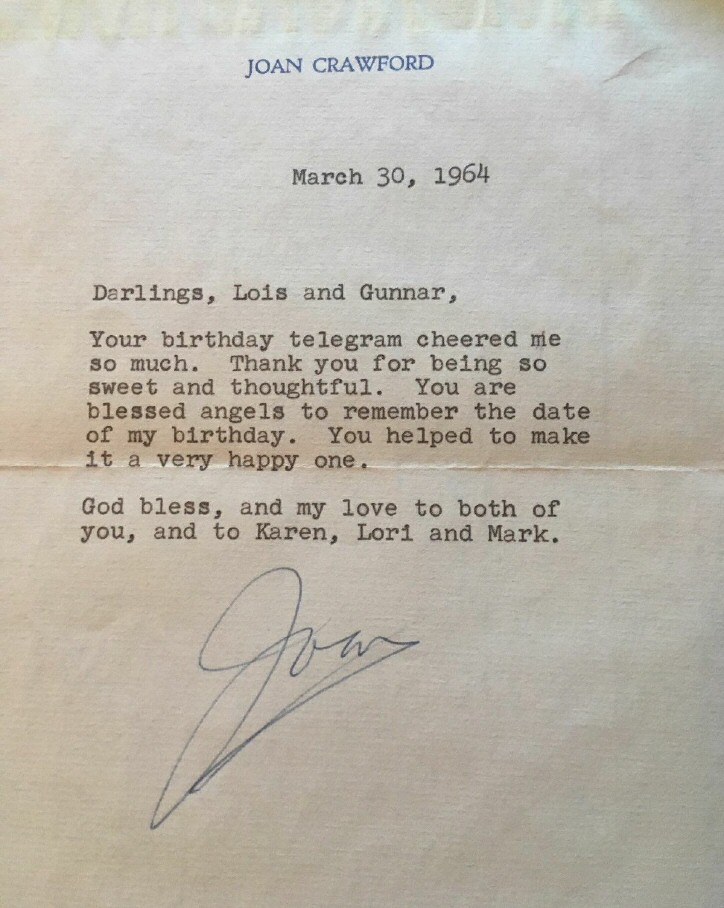 JOAN CRAWFORD
March 30, 1964
Darlings, Lois and Gunnar,
Your birthday telegram cheered me
so much.  Thank you for being so
sweet and thoughtful.  You are
blessed angels to remember the date
of my birthday.  You helped to make
it a very happy one.
God bless, and my love to both of
you, and to Karen, Lori and Mark.
Joan